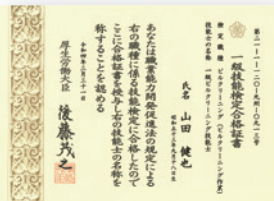 第二一-一-一二〇-九州-〇九一三号
一級技能検定合格証書
検定職種 ビルクリーニング(ビルクリーニング作業)
技能士の名称 一級ビルクリーニング技能士
氏名 山田 健也
昭和五十三年九月十八日生
あなたは職業能力開発促進法の規定による
右の職種に係る技能検定に合格したので
ここに合格証書を授与し右の技能士の名称を
称することを認める
令和四年三月三十一日
厚生労働大臣 後藤茂之